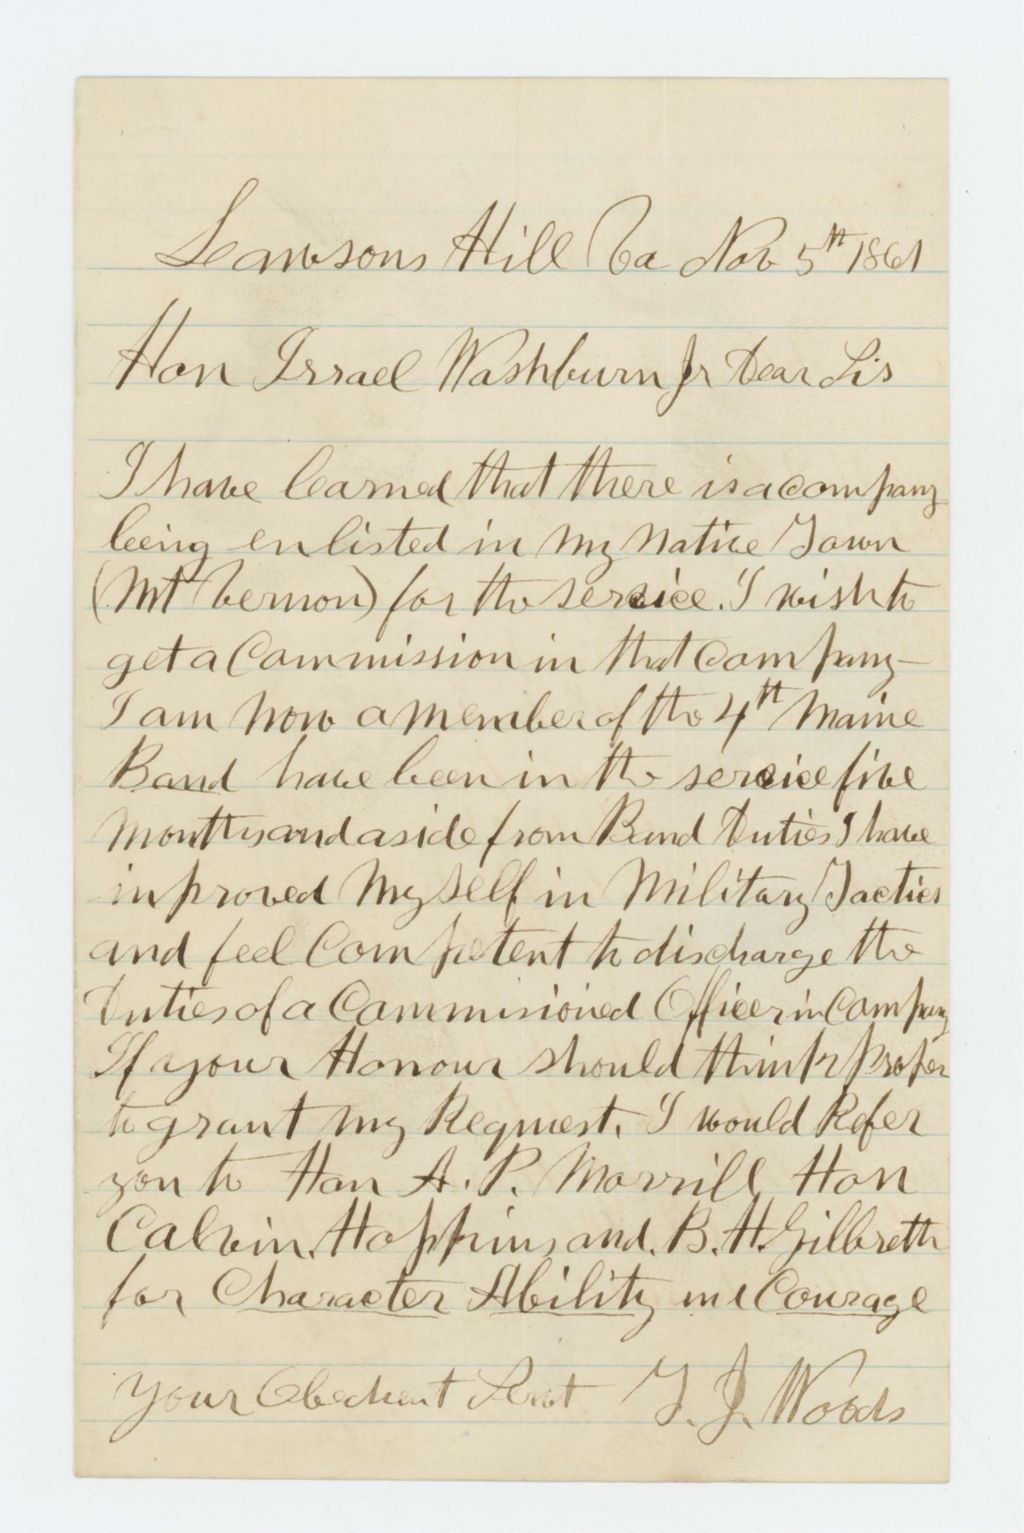 Leawsons Hill Va Nov 5th 1861
Hon Israel Washburn Jr Dear Sir
I have learned that there is a company
being enlisted in my native Town
(Mt Vernon) for the service. I wish to
get a Commission in that company–
I am now a member of the 4th Maine
Band have been in the service five
months and aside from Band Duties I have
improved myself in Military Tactics
and feel Competent to discharge the
Duties of a Commisioned Officer in Company
If your Honour should think proper
to grant my Request, I would Refer
you to Hon A. P. Morrill, Hon
Calvin, Hopkins, and, B. H. Gilbreth
for Character Ability and Courage
Your Obedient Servt T. J. Woods